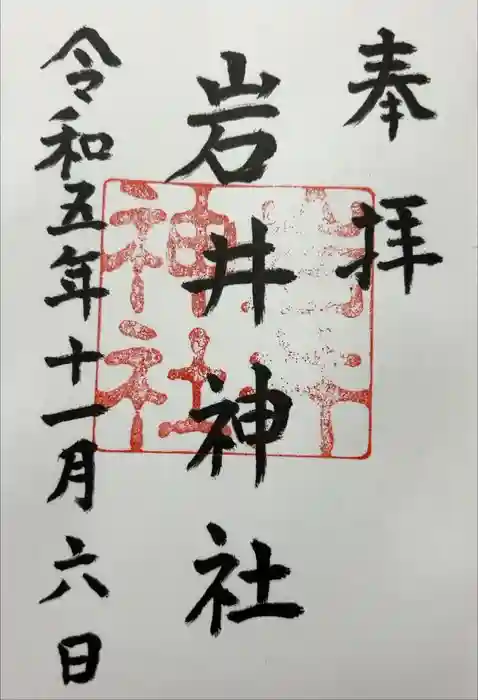 奉拝
岩井神社
令和五年十一月六日
神社